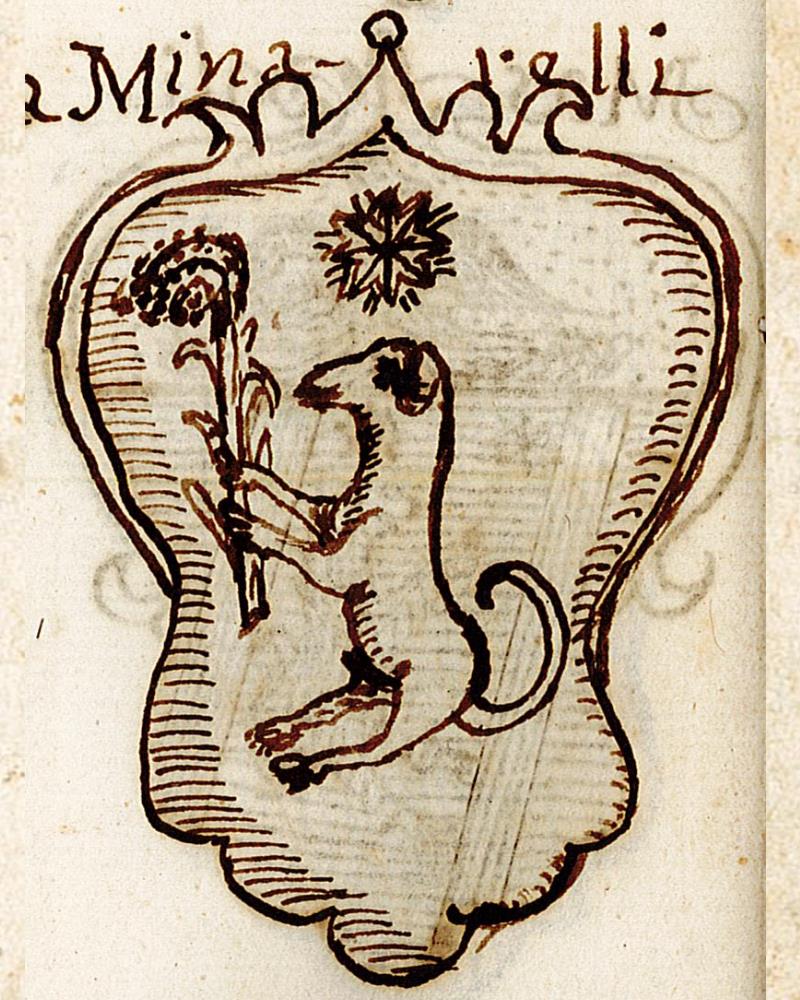 a Mina- relli